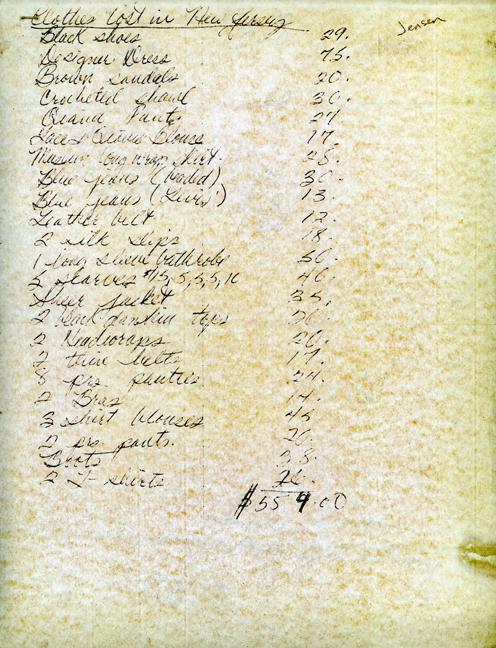 Clothes lost in New Jersey
Jensen
Black shoes 29.
Designer Dress 75.
Brown sandals 20.
Crocheted shawl 30.
Pants 27
Blouse 17.
long wrap skirt. 25.
Blue jeans (beaded) 30.
Blue jeans (Levis) 13.
Leather belt 12.
2 silk slips 18.
1 long sleeve bathrobe 50.
5 scarves $15, 5, 5, 5, 10 40.
jacket 35.
2 tops
2 Headwraps 20.
2 thin belts 17.
8 prs panties 24.
2 Bras 14.
3 shirt blouses 45
2 prs. pants. 20.
Boots 38.
2 T-shirts
$559.00